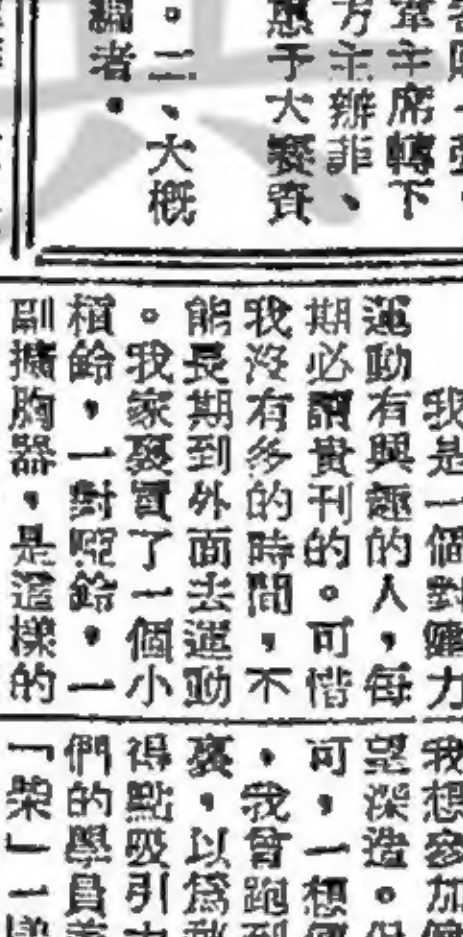 韋主席轉下
方主辦菲、
惠予大賽資
。二、大概
編者。
我是一個對健力
運動有興趣的人，每
期必讀貴刊的。可惜
我沒有多的時間，不
能長期到外面去運動
。我家裏買了一個小
槓鈴，一對啞鈴，一
副擴胸器，是這樣的
我想參加健
望深造。但
可，一想
，我曾跑到
裏，以爲
得點吸引力
們的學員
「榮」一